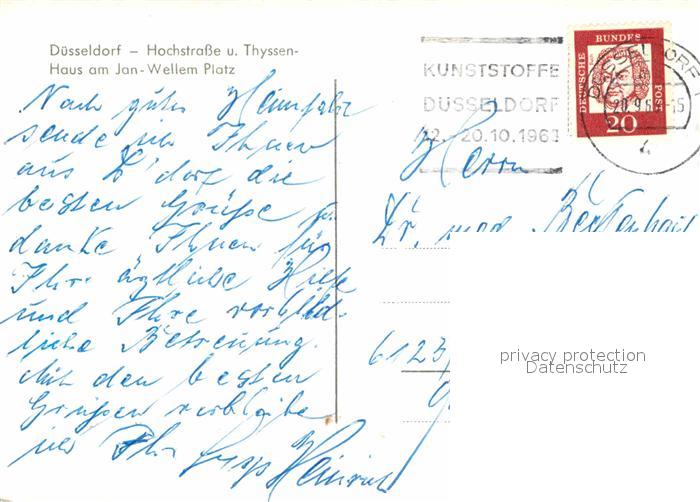 Düsseldorf – Hochstraße u. Thyssen-
Haus am Jan-Wellem Platz
Nach guter Heimfahrt
sende ich Ihnen
aus D'dorf die
besten Grüße
danke Ihnen für
Ihre ärztliche Hilfe
und Ihre vorbild-
liche Betreuung.
Mit den besten
Grüßen verbleibe
ich Ihr Heinrich
KUNSTSTOFFE
DÜSSELDORF
12. - 20.10.1963
DEUTSCHE BUNDESPOST
20
DÜSSELDORF 1
Herrn
Dr. med
6123
privacy protection
Datenschutz